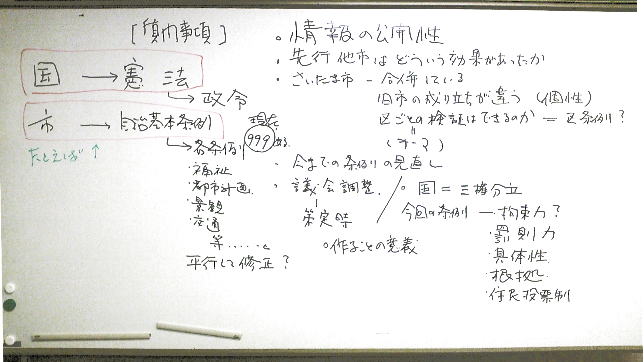 [質問事項]
国 → 憲法
→ 政令
市 → 自治基本条例
たとえば ↑
→ 各条例
現在 999 ある
・福祉
・都市計画
・景観
・交通
等……
平行して修正?
。情報の公開性
・先行他市はどういう効果があったか
・さいたま市 - 合併している
旧市の成り立ちが違う (個性)
区ごとの検証はできるのか = 区条例?
(テーマ)
・今までの条例の見直し
・議会調整
策定条
。作ることの意義
。国 = 三権分立
今回の条例 - 拘束力?
・罰則力
・具体性
・根拠
・住民投票制